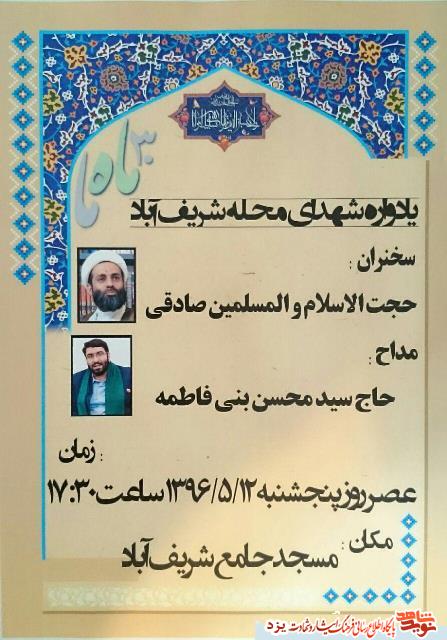 ۳۰ ماه ما
یادواره شهدای محله شریف آباد
سخنران :
حجت الاسلام و المسلمین صادقی
مداح :
حاج سید محسن بنی فاطمه
زمان :
عصر روز پنجشنبه ۱۳۹۶/۵/۱۲ ساعت ۱۷:۳۰
مکان :
مسجد جامع شریف آباد
نوید شاهد
پایگاه اطلاع رسانی فرهنگ ایثار و شهادت یزد